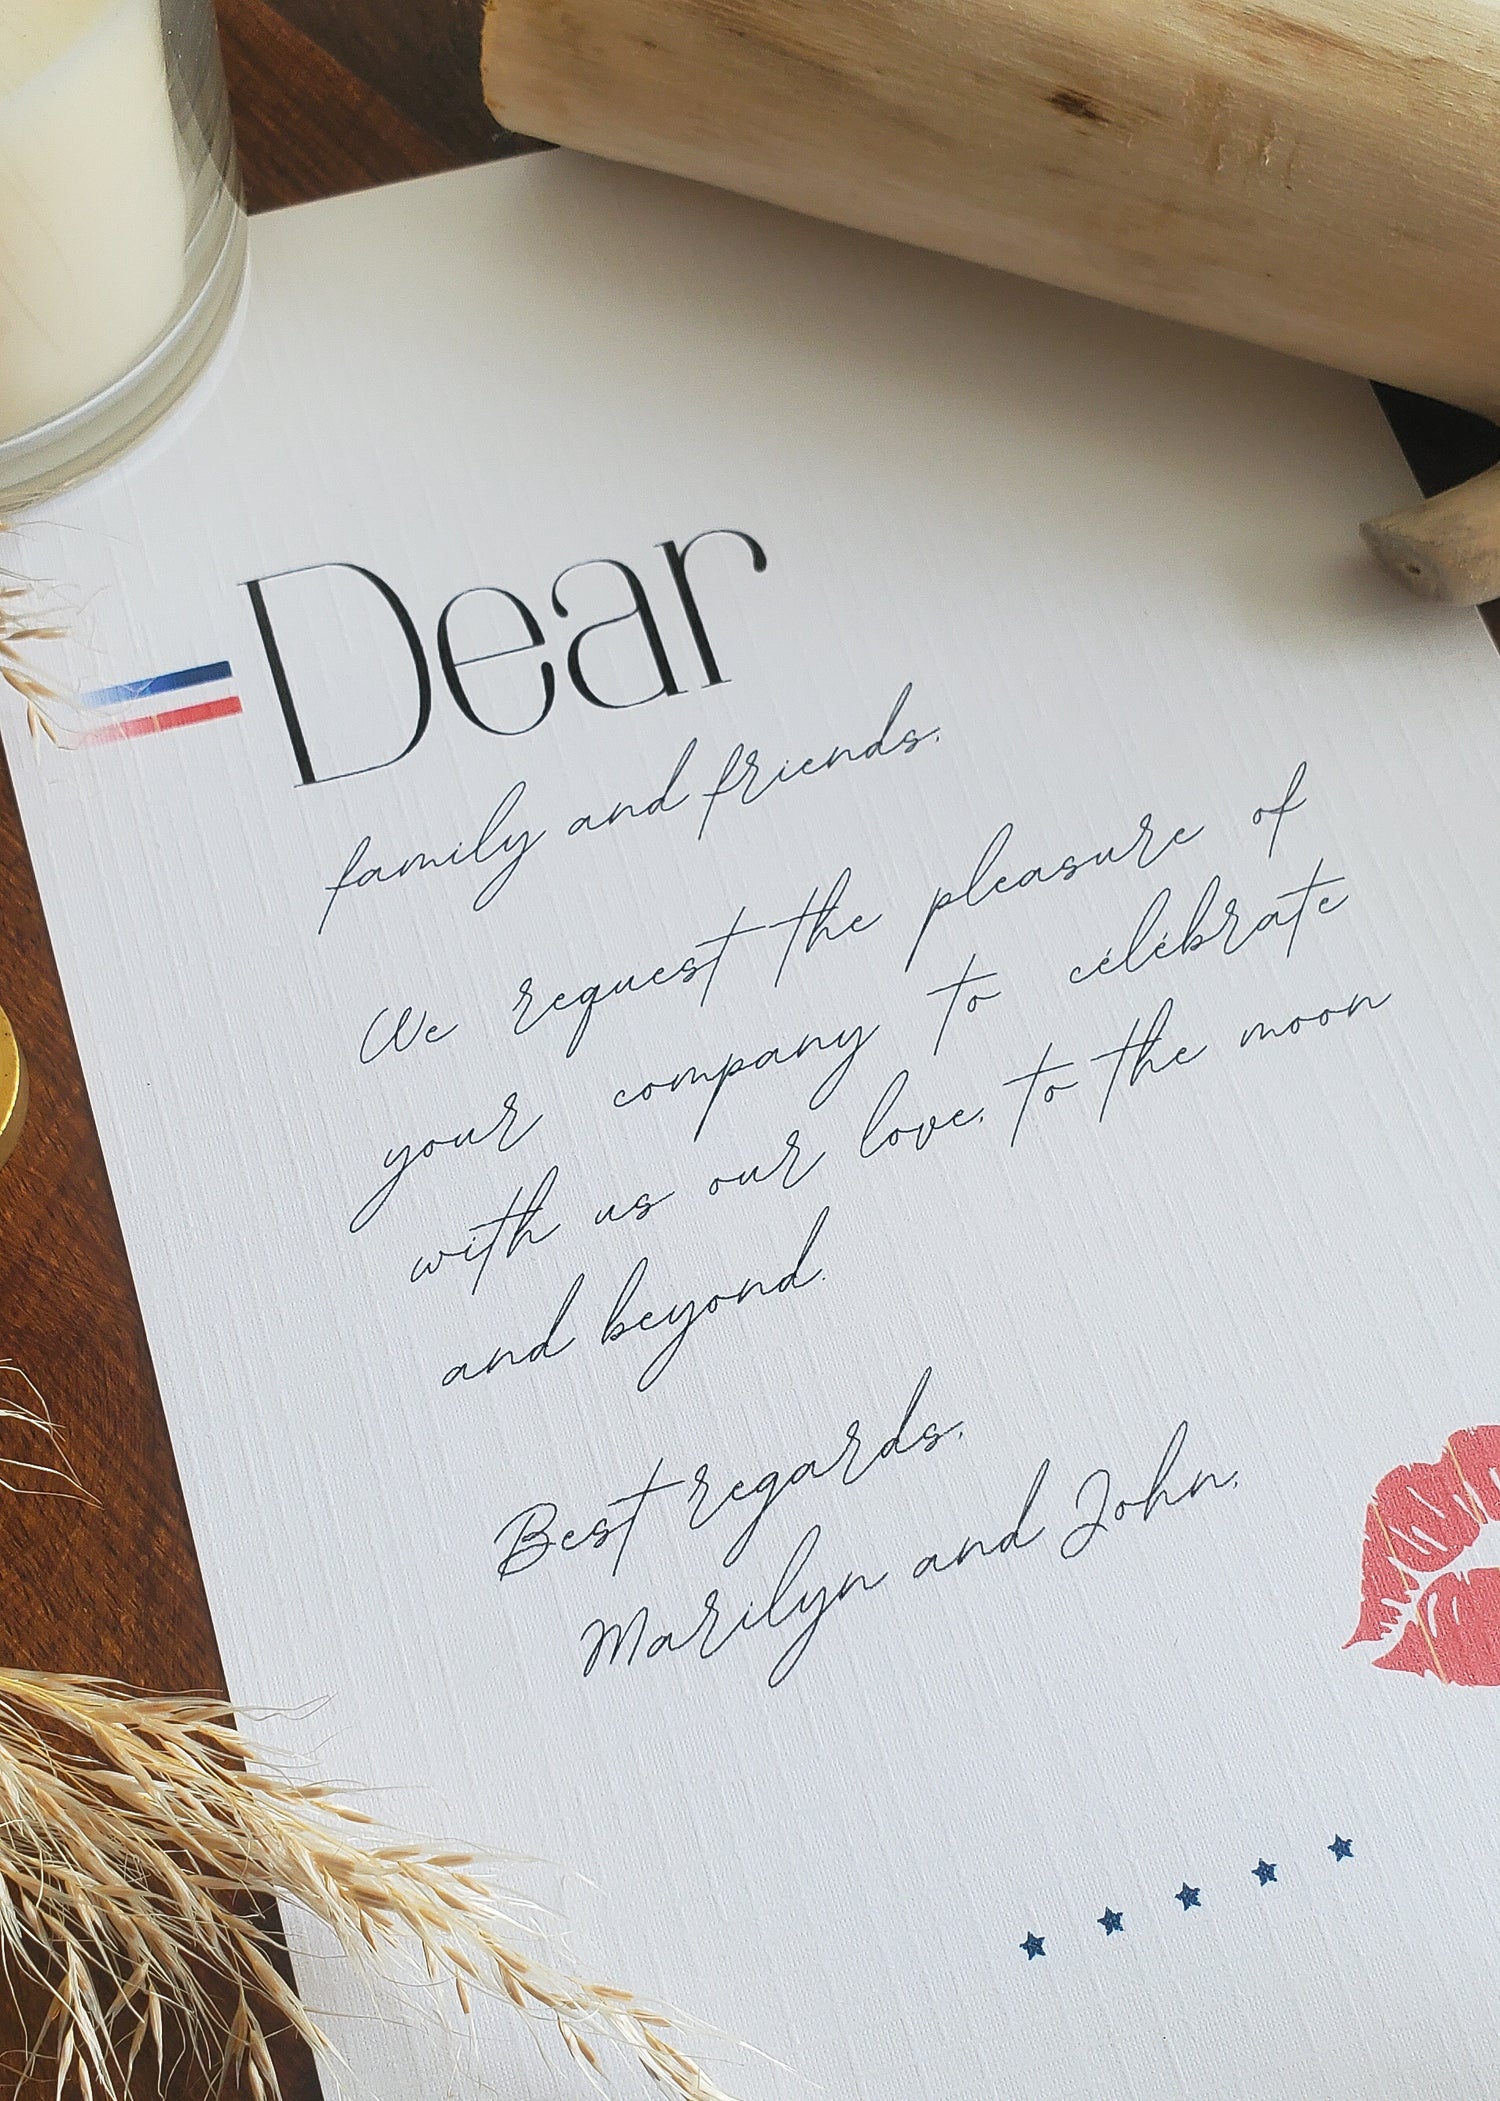 Dear
family and friends,
We request the pleasure of
your company to célébrate
with us our love, to the moon
and beyond.
Best regards,
Marilyn and John,